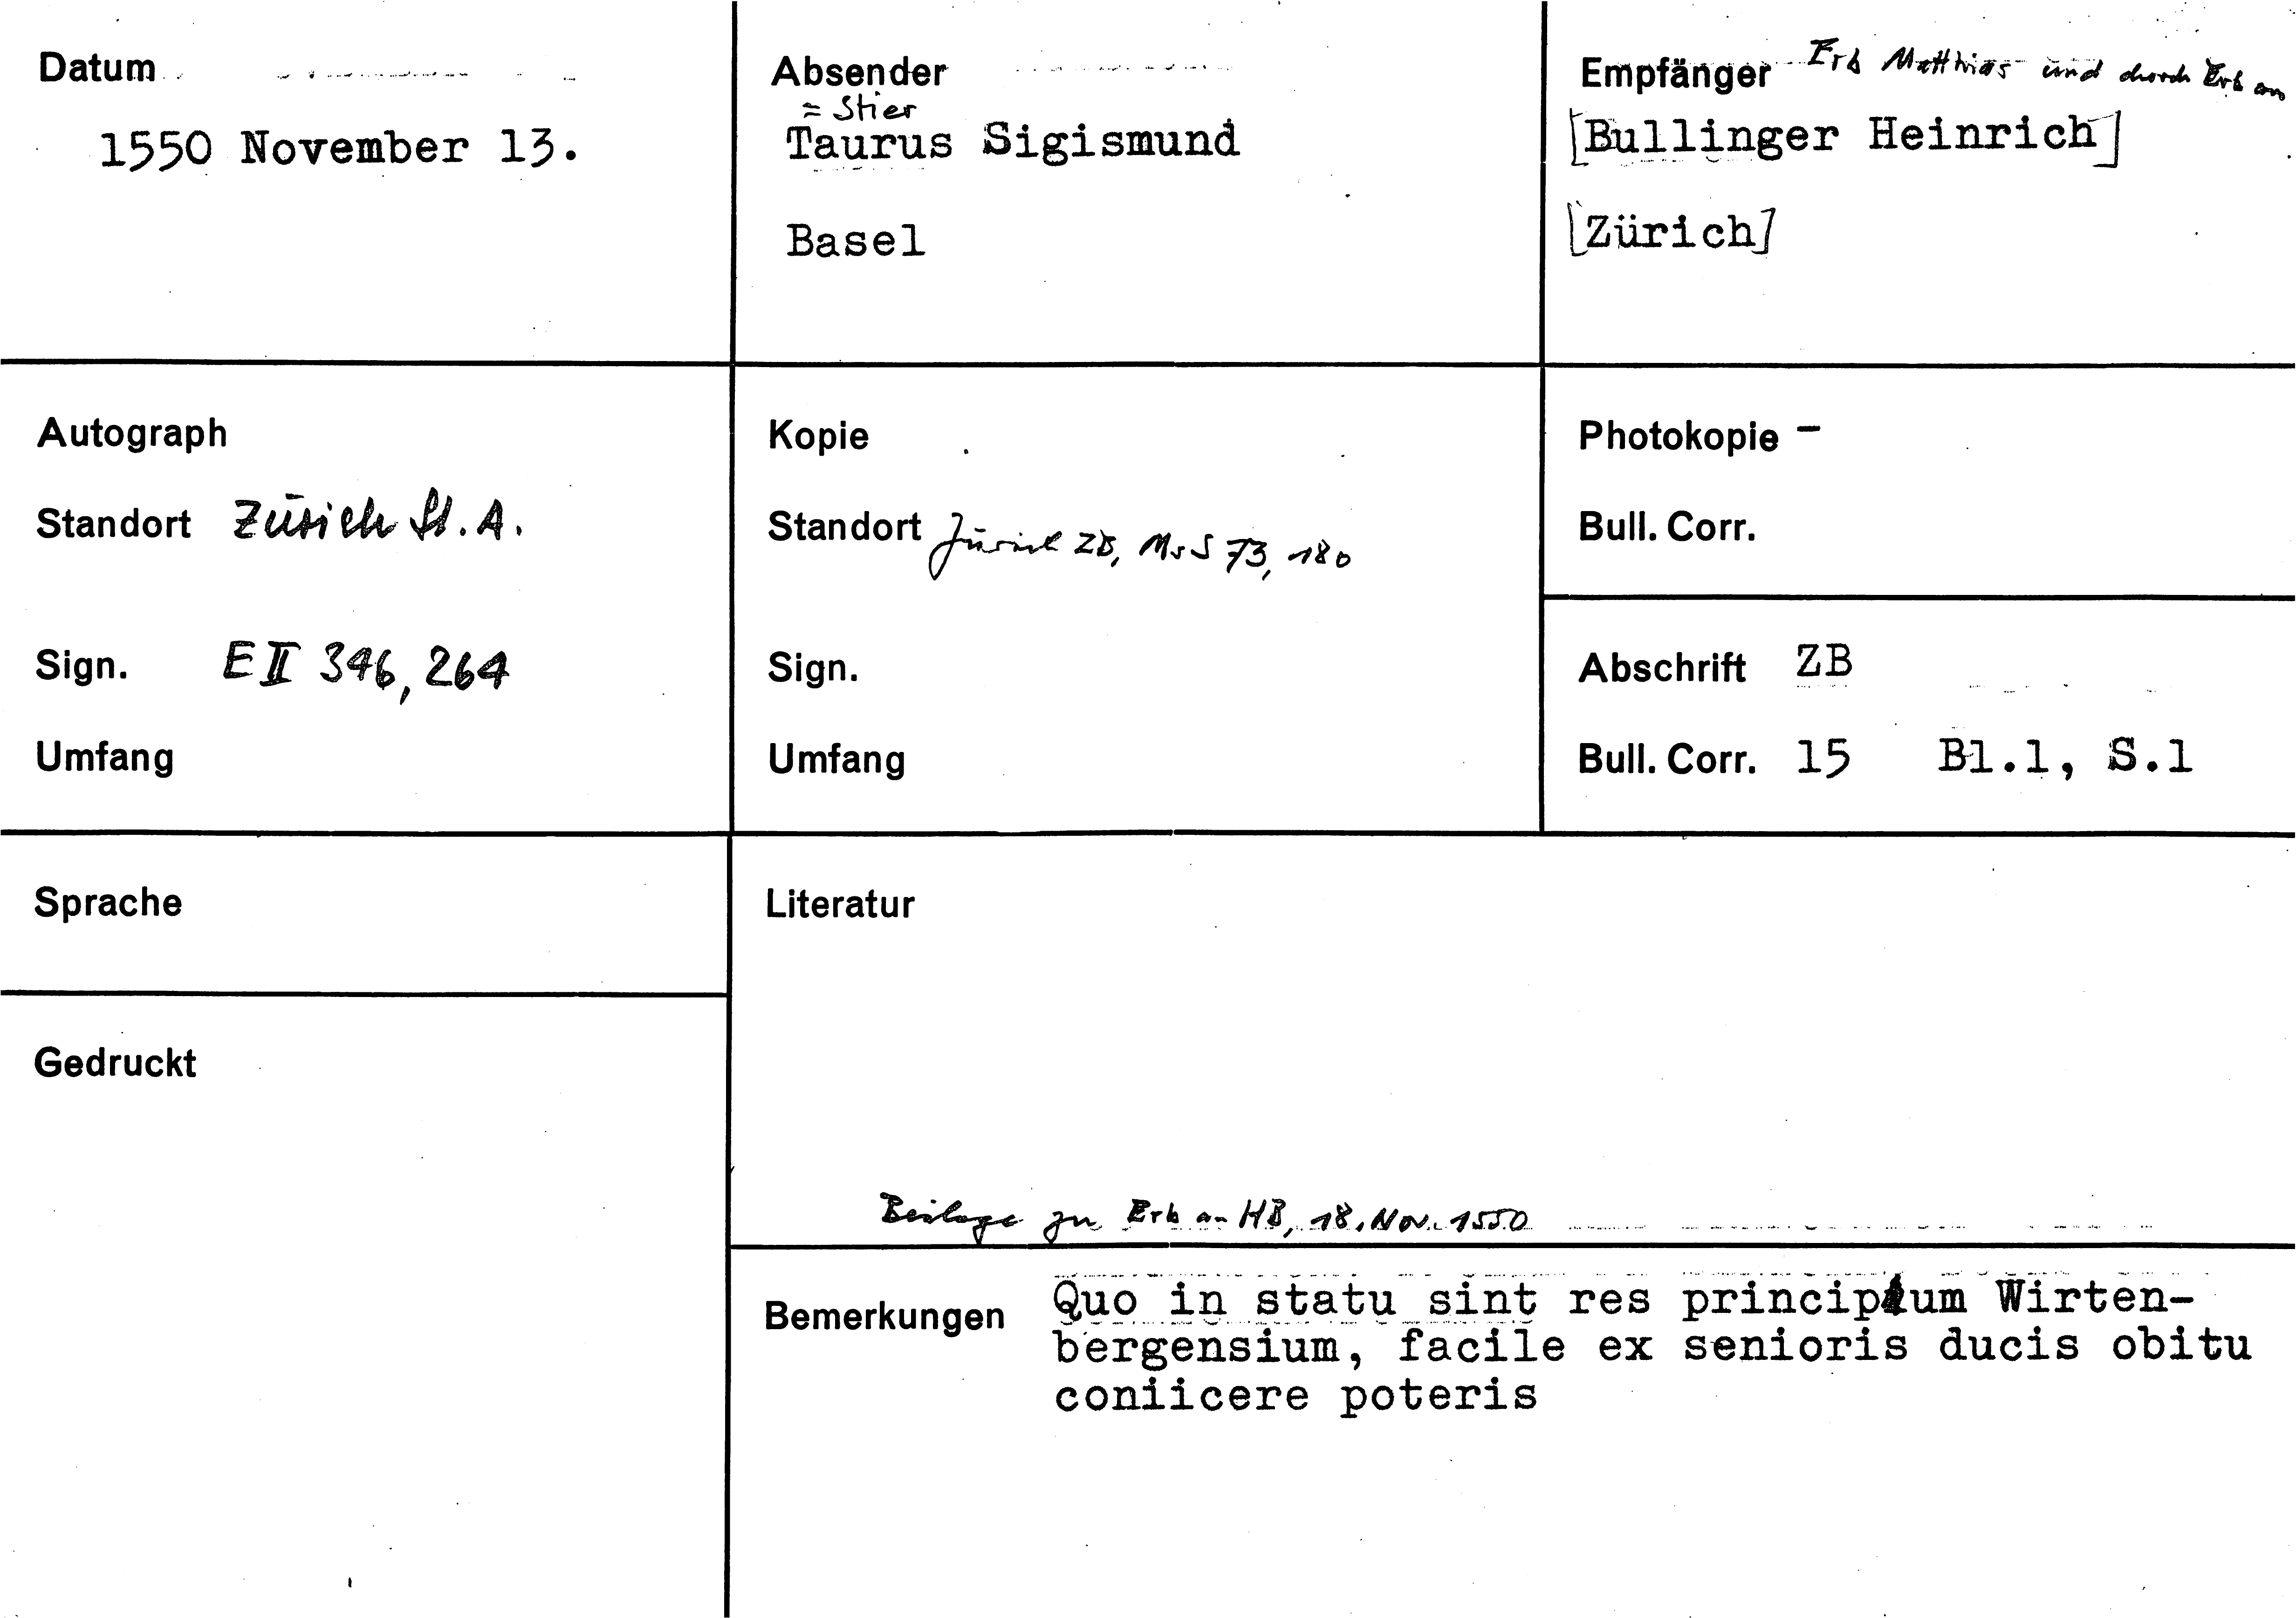 Datum
1550 November 13.
Absender
= Stier
Taurus Sigismund
Basel
Empfänger Erb Matthias und durch Erb an
[Bullinger Heinrich]
[Zürich]
Autograph
Standort Zürich St. A.
Sign. E II 346, 264
Umfang
Kopie
Standort Zürich ZB, Ms S 73, 180
Sign.
Umfang
Photokopie -
Bull. Corr.
Abschrift ZB
Bull. Corr. 15 Bl.1, S.1
Sprache
Gedruckt
Literatur
Beilage zu Erb an HB, 18. Nov. 1550
Bemerkungen Quo in statu sint res principum Wirten-
bergensium, facile ex senioris ducis obitu
coniicere poteris